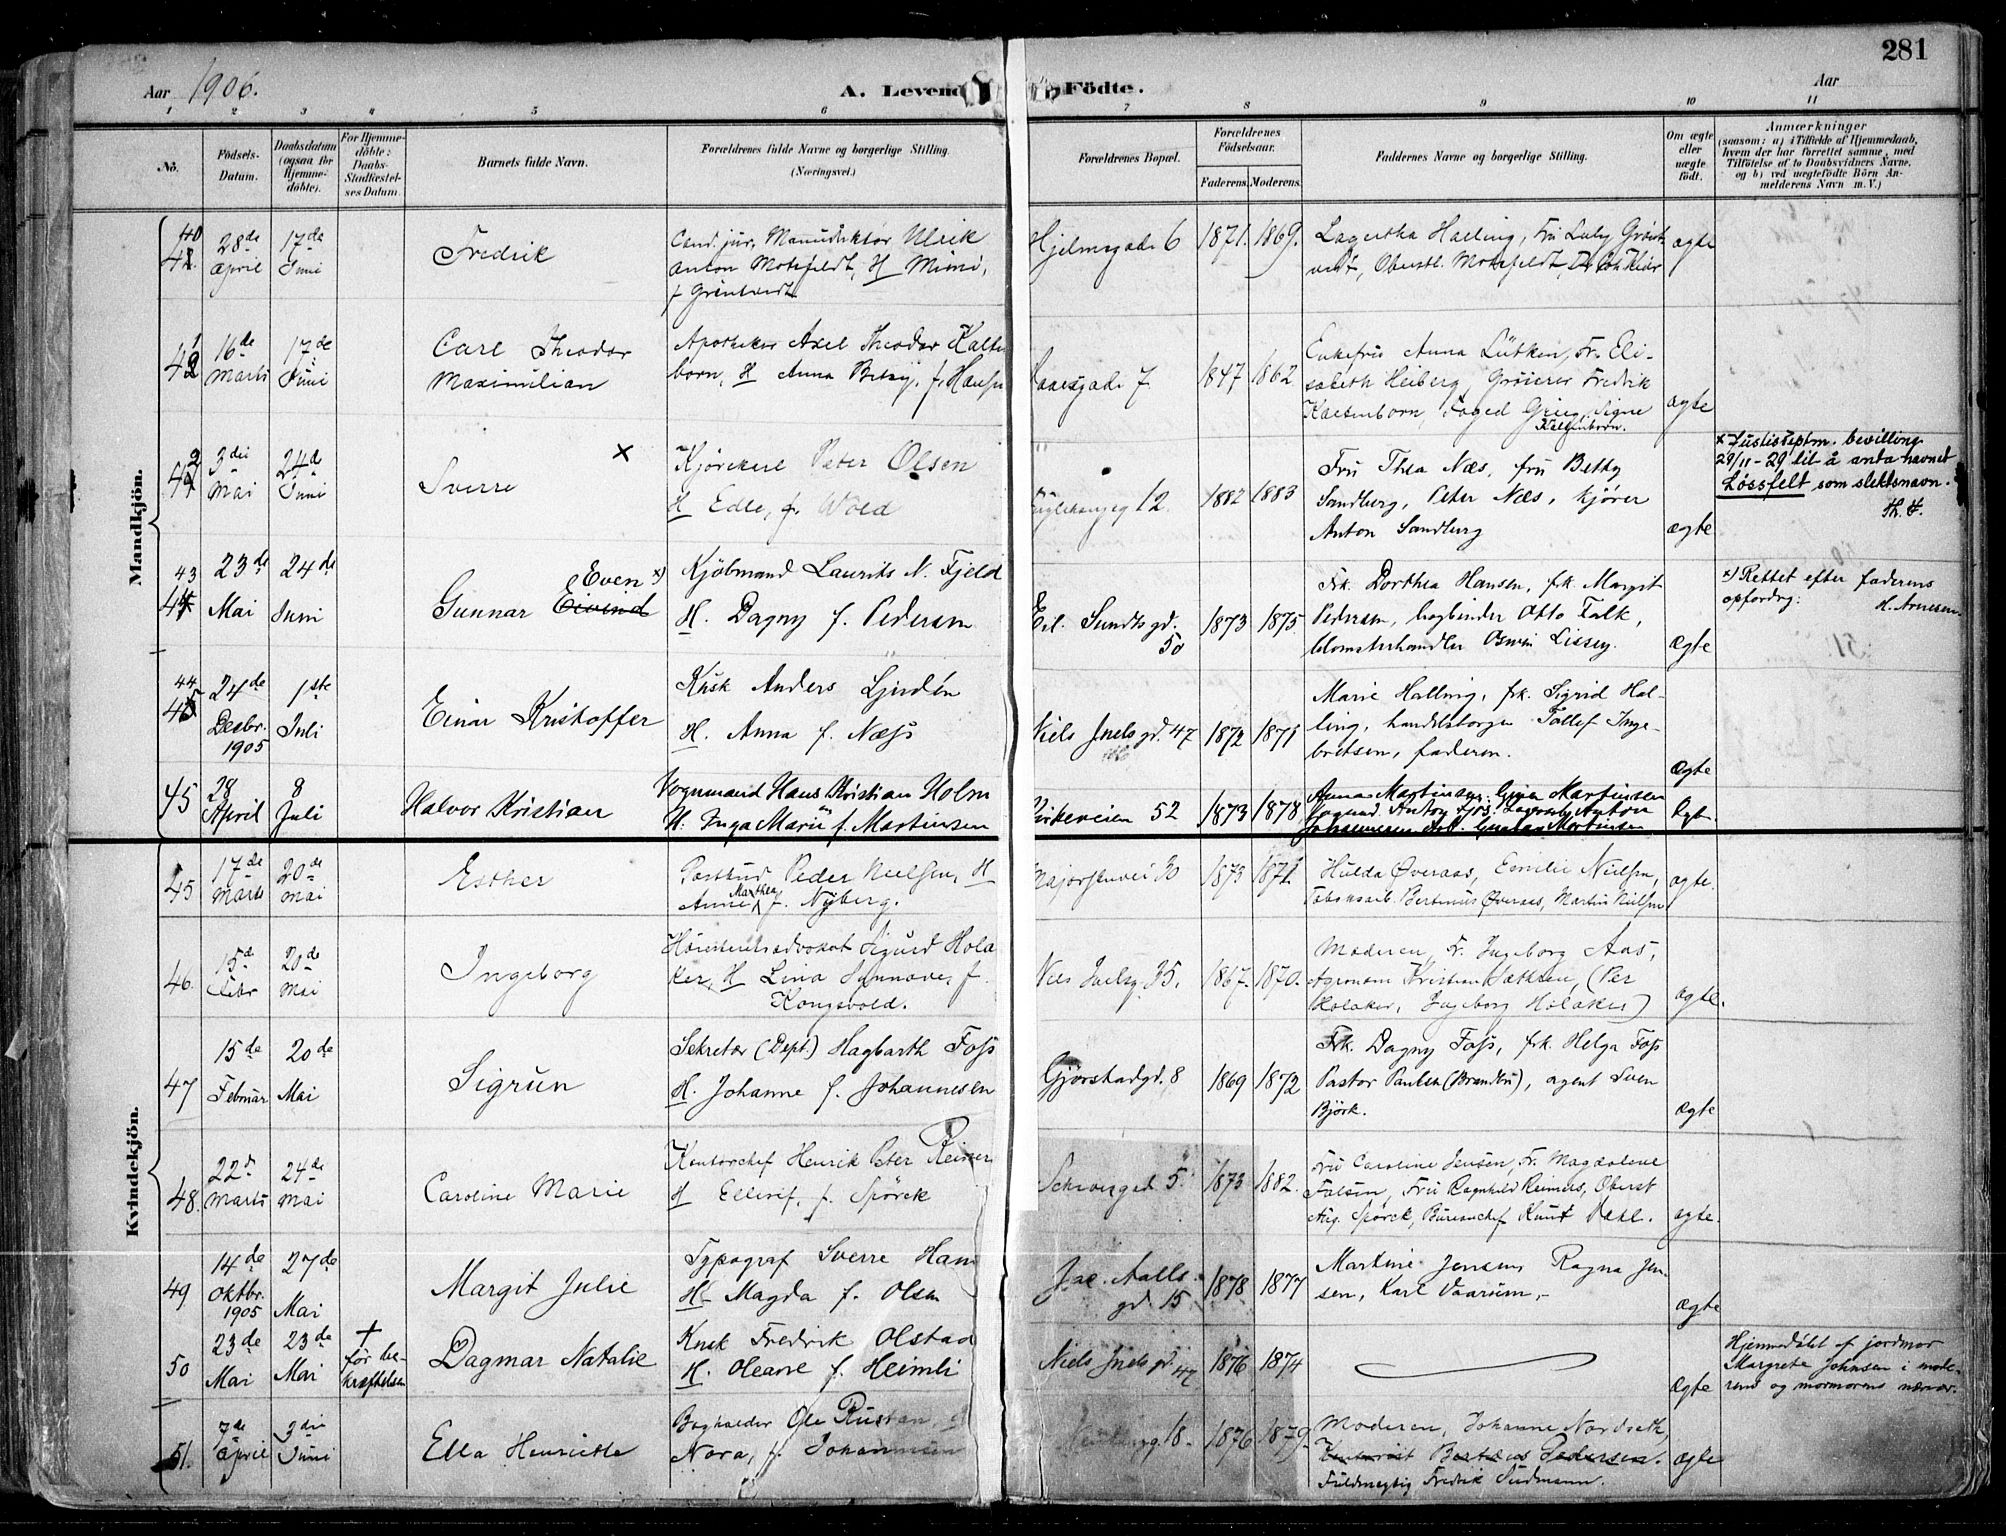 281
Aar 1906.
A. Levend
Födte.
Aar
1 2 3 4 5 6 7 8 9 10 11
No.
Födsels-Datum.
Daabsdatum (ogsaa for Hjemme-döbte).
For Hjemme-döbte: Daabs-Stadfæstel-ses Datum.
Barnets fulde Navn.
Forældrenes fulde Navne og borgerlige Stilling. (Næringsvei.)
Forældrenes Bopæl.
Forældrenes Födselsaar.
Faderens. Moderens.
Faddernes Navne og borgerlige Stilling.
Om ægte eller uægte födt.
Anmærkninger
(saasom: a) i Tilfælde af Hjemmedaab,
hvem der har forrettet samme, med
Tilföielse af to Daabsvidners Navne,
og b) ved uægtefödte Börn An-
melderens Navn m. V.)
Mandkjön.
40
28de April
17de Juni
Fredrik
Cand. jur., Manuduktør Ulrik
Anton Motzfeldt, H Mimi,
f. Grøntvedt
Hjelmsgade 6
1871. 1869.
Lagertha Halling, Fru Luby Grønt-
vedt, Oberstl. Motzfeldt,
ægte
16de Marts
17de Juni
Carl Theodor
Maximilian
Apotheker Axel Theodor Kalten
born, H Anna Betsy, f. Hansen
7
1847 1862
Enkefru Anna Lütken, Fr. Eli-
sabeth Heiberg, Grosserer Fredrik
Kaltenborn, Foged Grieg, Signe
Kaltenborn.
ægte
3die Mai
24de Juni
Sverre ×
Kjørekarl Peter Olsen
H Edle, f. Wold
12.
1882 1883
Fru Thea Næs, fru Betky
Sandberg, Peter Næs, kjører
Anton Sandberg
ægte
× Justisdeptm. bevilling
29/11-29 til å anta navnet
Løssfelt som slektsnavn.
43
23de Mai
24de Juni
(Even ×)
Gunnar Eivind
Kjöbmand Laurits N. Fjeld
H. Dagny f. Pedersen
Eil. Sundts gd.
50
1873 1875
Frk. Dorthea Hansen, frk. Margit
Pedersen, bogbinder Otto Falk,
blomsterhandler Oswin Lissey.
Ægte
×) Rettet efter faderens
opfordrg: H. Arnesen.
44
24de Decbr. 1905
1ste Juli
Einar Kristoffer
Kusk Anders Ljindén
H. Anna f. Næss
Niels Juels gd. 47
1872 1871
Marie Halling, frk. Sigrid Hal-
ling, handelsborger Tollef Inge-
bretsen, faderen.
Ægte
45
28 April
8 Juli
Halvor Kristian
Vognmand Hans Kristian Holm
H. Inga Marie f. Martinsen
Kirkeveien 52
1873 1878
Anna Martinsen,
Gustav Martinsen
Kvindekjön.
45
17de Marts
20de Mai
Esther
Postbud Peder Nielsen, H
Anne Marthea f. Nyberg.
Majorstuvei 30
1873 1871
Hulda Øveraas, Emilie Nielsen,
Fabriksarb. Bertinus Øveraas, Martin Nielsen
ægte.
46.
15de Febr
20de Mai
Ingeborg
Høiesteretsadvokat Sigurd Hola
ker, H Lina Synnøve, f.
Kongsvold.
Niels Juelsg. 35.
1867. 1870.
Moderen, Fr. Ingeborg Aas,
Agronom Kristian (Per
Holaker, Ingeborg Holaker)
ægte.
47
15de Februar
20de Mai
Sigrun
Sekretær (Dept.) Hagbarth Foss
H. Johanne f. Johannesen
Gjørstadgd. 8
1869 1872
Frk. Dagny Foss, frk. Helga Foss
Pastor Paulsen (Brandbu), agent Sven
Björk.
Ægte
48.
22de Marts
24de Mai
Caroline Marie
Kontorchef Henrik Peter Reimers
H Ellisif, f. Spørck
5
1873 1882.
Fru Caroline Jensen, Fr. Magdalene
Falsen, Fru Ragnhild Reimers, Oberst
Aug. Spørck, Bureauchef Knut Dahl.
ægte.
49
14de Oktbr. 1905
27de Mai
Margit Julie
Typograf Sverre Ham
H. Magda f. Olsen
Jac. Aalls
gd. 15
1878 1877
Martine Jensen, Ragna Jen-
sen, Karl Vaarum,-
Ægte
50
23de Mai
23de Mai
+
før be-
kræftelsen
Dagmar Natalie
Kusk Fredrik Olstad
H. Oleane f. Heimli
Niels Juels gd. 47
1876 1874
Ægte
Hjemmedøbt af jordmor
Margrete Johnsen i mode-
rens og mormorens nærvær.
51.
7de April
3die Juni
Ella Henriette
Bogholder Ole Rustan, H
Nora, f. Johannesen
18.
1876 1879.
Moderen, Johanne Nordseth,
Kontorist Bertæus Pedersen.
Fuldmægtig Fredrik Sudmann.
ægte